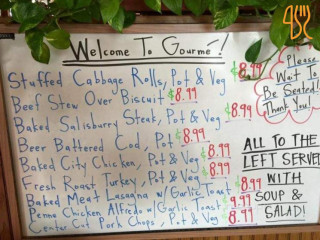 Welcome To Gourmé!
Stuffed Cabbage Rolls, Pot & Veg $8.99
Beef Stew Over Biscuit $8.99
Baked Salisburry Steak, Pot & Veg $8.99
Beer Battered Cod, Pot $8.99
Baked City Chicken, Pot & Veg $8.99
Fresh Roast Turkey, Pot & Veg $8.99
Baked Meat Lasagna w/ Garlic Toast $8.99
Penne Chicken Alfredo w/ Garlic Toast $8.99
Center Cut Pork Chops, Pot & Veg $8.99
Please
Wait To
Be Seated!
Thank You!
ALL TO THE
LEFT SERVED
WITH
SOUP &
SALAD!